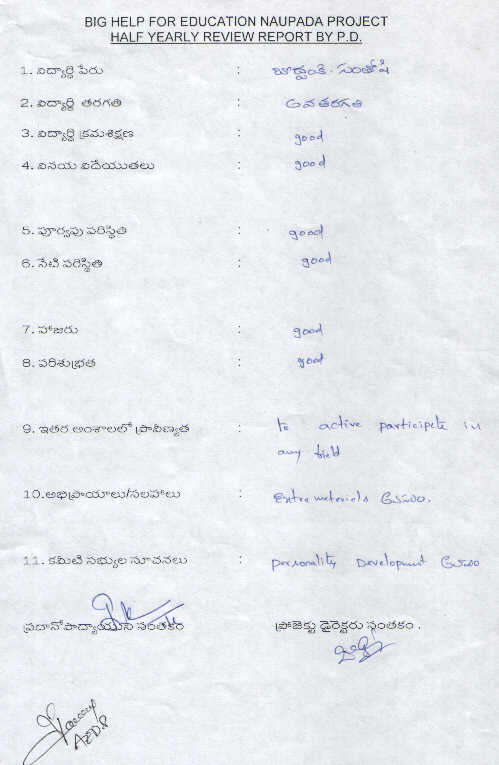 BIG HELP FOR EDUCATION NAUPADA PROJECT
HALF YEARLY REVIEW REPORT BY P.D.
1. విద్యార్థి పేరు : సంతోషి
2. విద్యార్థి తరగతి : 6వ తరగతి
3. విద్యార్థి క్రమశిక్షణ : good
4. వినయ విదేయుతలు : good
5. పూర్వపు పరిస్థితి : good
6. నేటి పరిస్థితి : good
7. హాజరు : good
8. పరిశుభ్రత : good
9. ఇతర అంశాలలో ప్రావీణ్యత : to active participete in
any field
10.అభిప్రాయాలు/సలహాలు : Extra meterials
11. కమిటి సభ్యుల సూచనలు : personality Development
ప్రదానోపాద్యాయుని సంతకం ప్రాజెక్టు డైరెక్టరు సంతకం .